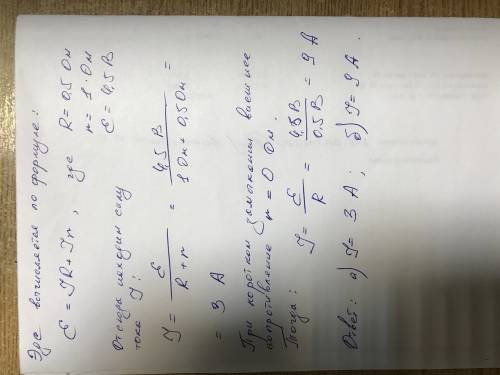 Эдс вычисляется по формуле:
ℰ = IR + Ir, где R = 0,5 Ом
r = 1 Ом
ℰ = 4,5 В
Отсюда находим силу
тока I:
I = ℰ / (R + r) = 4,5 В / (1 Ом + 0,5 Ом) =
= 3 А
При коротком замыкании внешнее
сопротивление r = 0 Ом.
Тогда: I = ℰ / R = 4,5 В / 0,5 В = 9 А
Ответ: а) I = 3 А; б) I = 9 А.